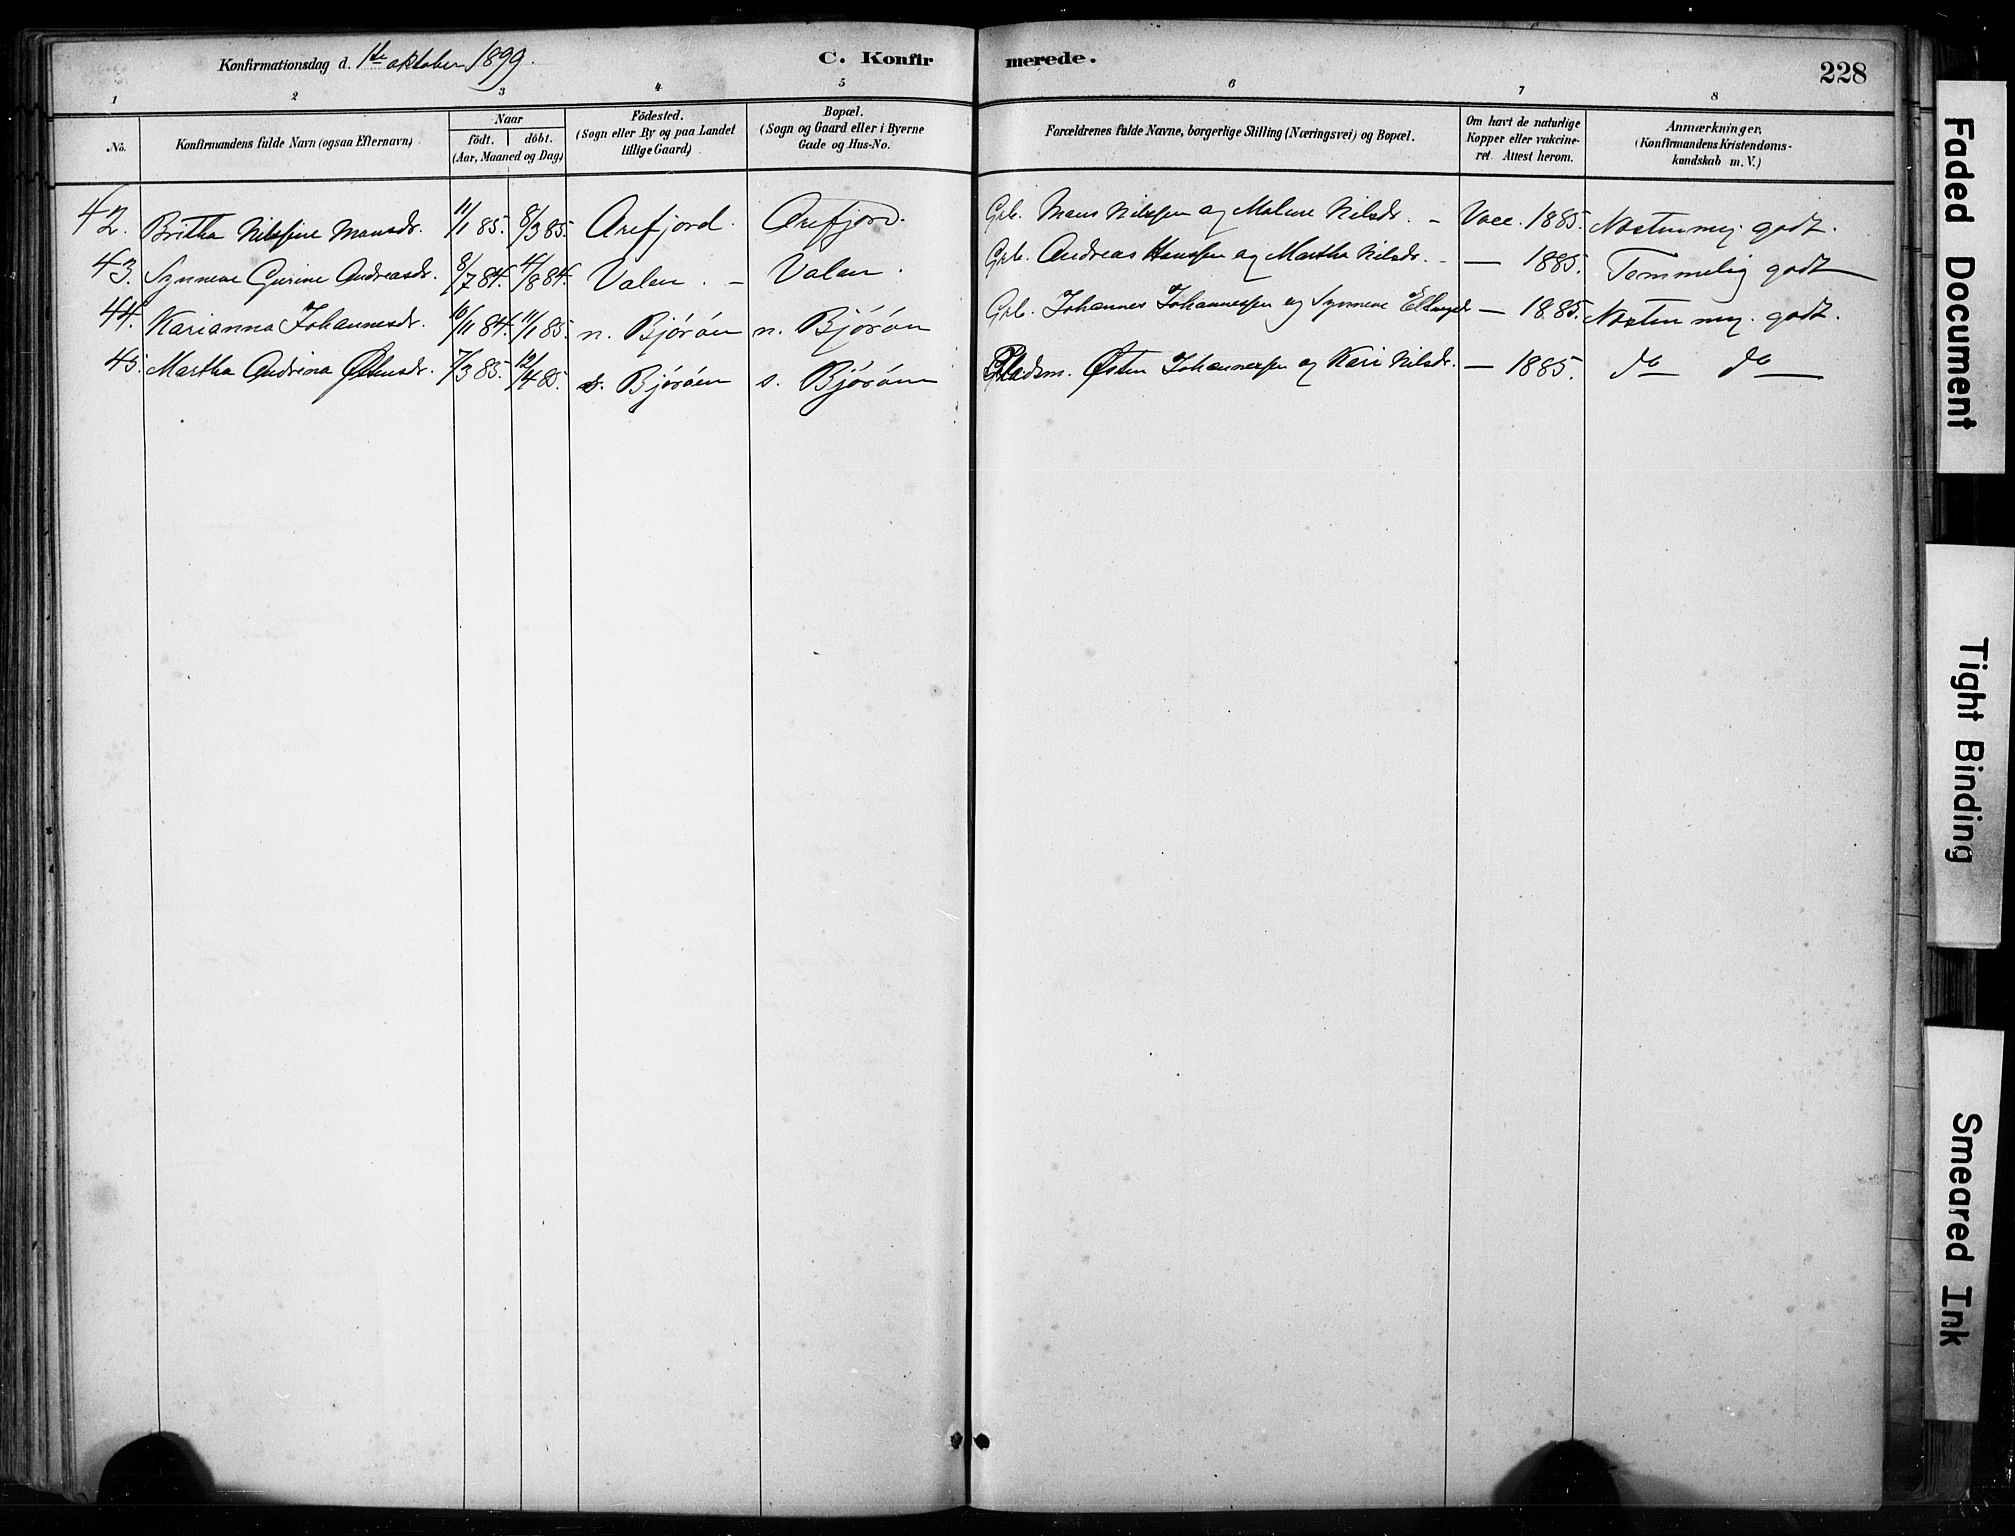 Konfirmationsdag d. 1ste oktober 1899.
C. Konfirmerede.
228
1 2 3 4 5 6 7 8
No.
Konfirmandens fulde Navn (ogsaa Efternavn)
Naar
födt. döbt.
(Aar, Maaned og Dag)
Födested.
(Sogn eller By og paa Landet
tillige Gaard)
Bopæl.
(Sogn og Gaard eller i Byerne
Gade og Hus-No.
Forældrenes fulde Navne, borgerlige Stilling (Næringsvei) og Bopæl.
Om havt de naturlige
Kopper eller vakcine-
ret. Attest herom.
Anmærkninger.
(Konfirmandens Kristendoms-
kundskab m. V.)
42. Britha Nilsine Monsdr. 11/1 85. 8/3 85. Arefjord. Arefjord. Grb. Mons Nilssen og Malene Nilsdr. - Vacc. 1885. Næsten mg. godt.
43. Synneve Gurine Andreasdr. 8/7 84. 4/8 84. Valen. - Valen. Grb. Andreas Hanssen og Martha Nilsdr. - — 1885. Temmelig godt
44. Karianna Johannesdr. 16/11 84. 11/1 85. n. Bjøröen n. Bjøröen Grb. Johannes Johannessen og Synneve Ellingsdr — 1885. Næsten mg. godt.
45. Martha Andrina Østensdr. 7/3 85. 12/4 85. s. Bjøröen s. Bjøröen Pladsm. Østen Johannessen og Kari Nilsdr. — 1885. do do
Faded Document
Tight Binding
Smeared Ink